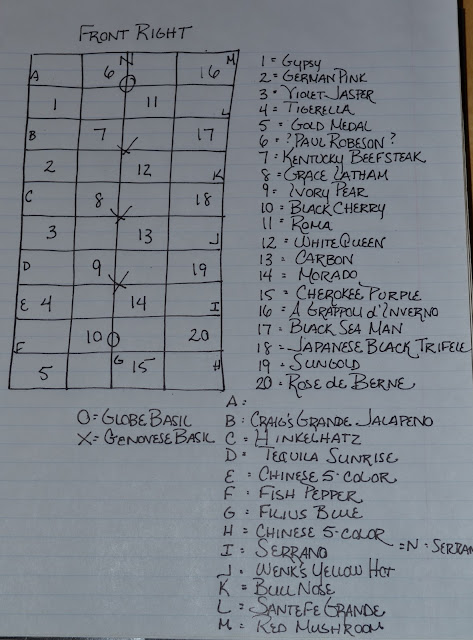 FRONT RIGHT
N M
A 6 16
1 11 L
B 7 17
2 12 K
C 8 18
3 13 J
D 9 19
E 4 14 I
F 10 20
5 G 15 H
1 = GYPSY
2 = GERMAN PINK
3 = VIOLET JASPER
4 = TIGERELLA
5 = GOLD MEDAL
6 = ?PAUL ROBESON?
7 = KENTUCKY BEEFSTEAK
8 = GRACE LATHAM
9 = IVORY PEAR
10 = BLACK CHERRY
11 = ROMA
12 = WHITE QUEEN
13 = CARBON
14 = MORADO
15 = CHEROKEE PURPLE
16 = A GRAPPOLI d'INVERNO
17 = BLACK SEA MAN
18 = JAPANESE BLACK TRIFELE
19 = SUNGOLD
20 = ROSE de BERNE
O = GLOBE BASIL
X = GENOVESE BASIL
A =
B = CRAIG'S GRANDE JALAPENO
C = HINKELHATZ
D = TEQUILA SUNRISE
E = CHINESE 5-COLOR
F = FISH PEPPER
G = FILIUS BLUE
H = CHINESE 5-COLOR
I = SERRANO = N - SERRAN
J = WENK'S YELLOW HOT
K = BULL NOSE
L = SANTE FE GRANDE
M = RED MUSHROOM